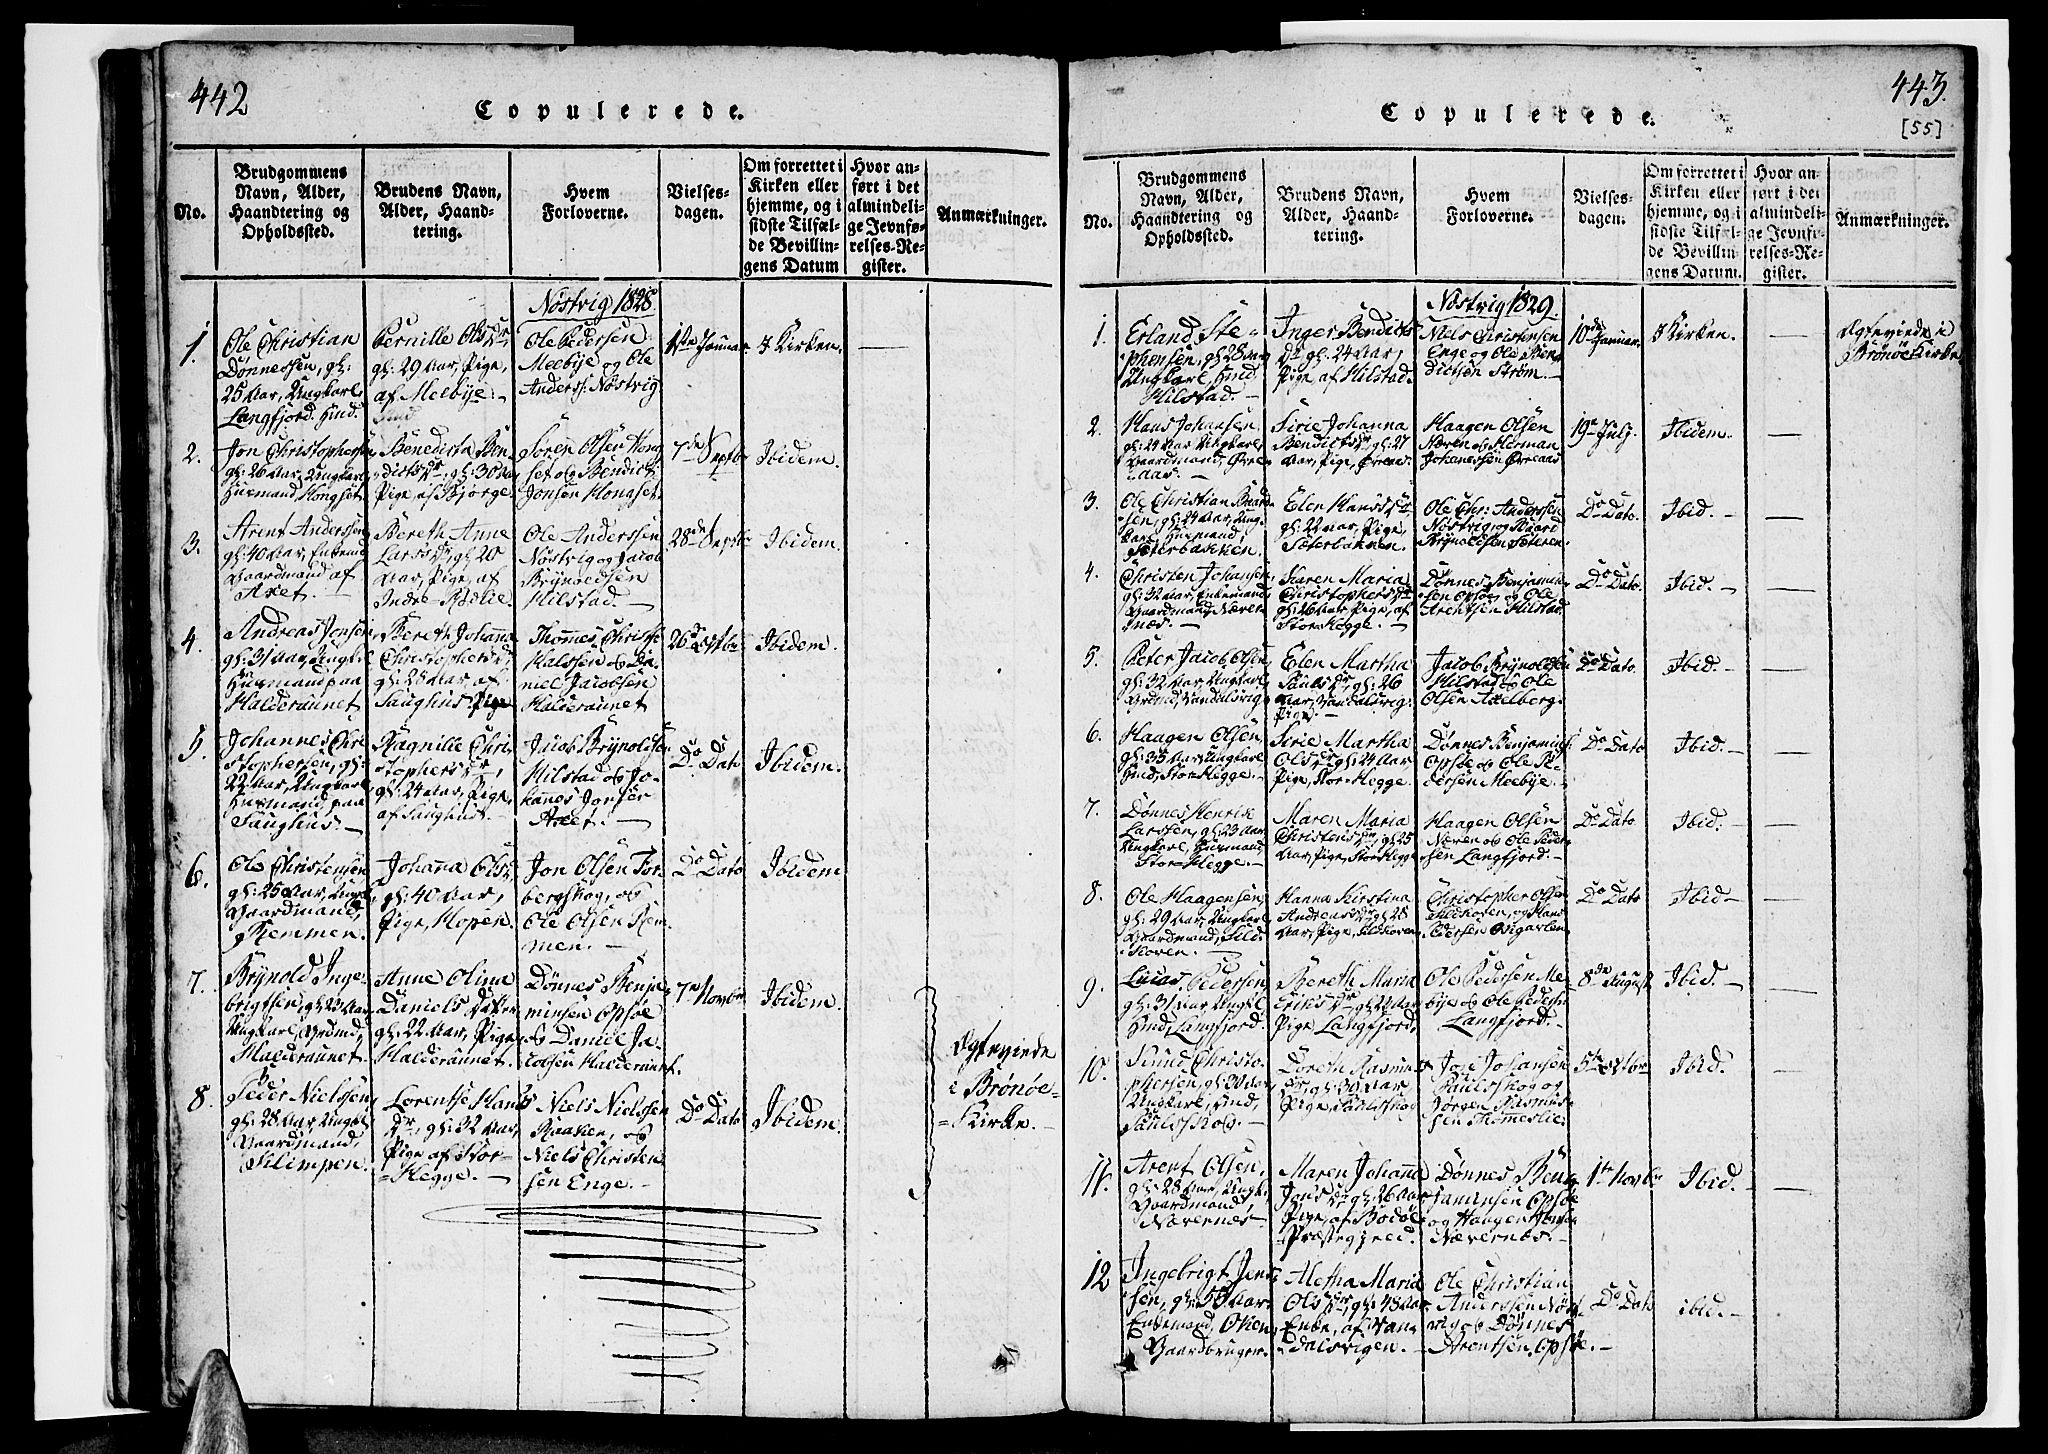 442
Copulerede.
No.
Brudgommens
Navn, Alder,
Haandtering og
Opholdssted.
Brudens Navn,
Alder, Haand-
tering.
Hvem
Forloverne.
Vielses-
dagen.
Om forrettet i
Kirken eller
hjemme, og i
sidste Tilfæl-
de Bevillin-
gens Datum
Hvor an-
ført i det
almindeli-
ge Jevnfø-
relses-Re-
gister.
Anmærkninger.
Nöstvig 1828
1.
Ole Christian
Dønnessen, gl:
25 Aar, Ungkarl,
Langfjord. Hmd.
Pernille Olsdr,
gl: 29 Aar, Pige,
af Melbÿe.
Ole Pedersen
Meebÿe og Ole
Anderss: Nöstvig
Januar
I Kirken.
2.
Jon Christophersen
gl: 26 Aar, Ungkarl
Huusmand, Hongset
Benedicta Ben-
dictsdr, gl: 30 Aar
Pige, af Bjørge.
Sören Olsen Hong-
set og Bendict
Jonsen Hongset.
7de Septbr
Ibidem.
3.
Arent Anderssen
gl: 40 Aar, Enkemd
Gaardmand af
Axet.
Bereth Anne
Larsdr, gl: 20
Aar, Pige, af
Indre
Ole Anderssen
Nöstvig og Jacob
Brÿnoldsen
Hilstad.
28de Septbr
Ibidem.
4.
Andreas Jonsen,
gl: 31 Aar, Ungkl
Huusmand paa
Halderaunet
Bereth Johanna
Christophersdr,
gl: 25 Aar, af
Saughus Pige
Thomes Christ
Halssen og Da-
niel Jacobsen
Halderaunet
26de Octbr
Ibidem.
5.
Johannes Chri-
stophersen, gl:
22 Aar, Ungkarl
Huusmand, paa
Saughus.
Ragnille Chri-
stophersdr,
gl: 24 Aar, Pige,
af Saughus.
Jacob Brÿnoldsen
Hilstad og Jo-
hannes Jonsen
Axet.
Do Dato
Ibidem.
6.
Ole Christensen
gl: 25 Aar, Ungkl,
Gaardmand,
Remmen.
Johanna Olsdr,
gl: 40 Aar,
Pige, Hopen.
Jon Olsen Tor-
bergskog, og
Ole Olsen Rem-
men.
Do Dato
Ibidem.
7.
Brÿnold Inge-
brigtsen, gl: 23 Aar
Ungkarl, Grdmd,
Halderaunet.
Anne Olina
Daniels Datter
gl: 22 Aar, Pige
Halderaunet.
Dønnes Benja-
minsen Opsöe
og Daniel Ja-
cobsen Halderaunet.
7de Novbr
Ibidem.
8.
Peder Nielssen,
gl: 28 Aar, Ungkl
Gaardmand,
Klimpen.
Lorentse Hans
Dr, gl: 32 Aar,
Pige af Stor-
Hegge.
Niels Nielssen
Raaken, og
Niels Christen
sen Enge.
Do Dato
Ibidem.
Ægteviede
i Brønøe
Kirke.
443.
[55]
Copulerede.
No.
Brudgommens
Navn, Alder,
Haandtering og
Opholdssted.
Brudens Navn,
Alder, Haand-
tering.
Hvem
Forloverne.
Vielses-
dagen.
Om forrettet i
Kirken eller
hjemme, og i
sidste Tilfæl-
de Bevillin-
gens Datum.
Hvor an-
ført i det
almindeli-
ge Jevnfø-
relses-Re-
gister.
Anmærkninger.
Nöstvig 1829.
1.
Erland Ste-
phensen, gl: 28 Aar
Ungkarl, Hmd,
Hilstad.
Inger Bendicts
dr gl: 24 Aar,
Pige, af Hilstad.
Niels Christensen
Enge og Ole Ben-
dictsen Strøm.
10de Januar.
I Kirken.
Ægteviede i
Brønöe Kirke
2.
Hans Johansen
gl: 24 Aar Ungkarl,
Gaardmand, Ørre-
aas.
Sirie Johanna
Bendictsdr, gl: 27
Aar, Pige, Ørreaas.
Haagen Olsen
Næven og Herman
Johanessen Ørreaas
19de Julj.
Ibidem.
3.
Ole Christian Baard-
sen, gl: 24 Aar, Ung-
karl, Huusmand,
Sæterbakken.
Elen Hansdr
gl: 22 Aar, Pige,
Sæterbakken.
Ole Chr: Anderssen
Nöstvig, og Baard
Brÿnoldsen Sæteren.
Do Dato.
Ibid.
4.
Christen Johansen,
gl: 32 Aar, Enkemand
Gaardmand, Næver-
næs.
Karen Maria
Christophersdr
gl: 26 Aar, Pige, af
Stor-Hegge.
Dønnes Benjamin-
sen Opsöe, og Ole
Arentsen Hilstad.
Do Dato.
Ibid.
5.
Peter Jacob Olsen,
gl: 32 Aar, Ungkarl,
Grdmd, Vandalsvig
Elen Martha
Paulsdr, gl: 26
Aar, Vandalsvig
Pige.
Jacob Brÿnoldsen
Hilstad og Ole
Olsen Axelberg.
Do Dato
Ibid.
6.
Haagen Olsen
gl: 35 Aar, Ungkarl
Hmd, Stor-Hegge.
Sirie Martha
Olsdr gl: 24 Aar
Pige, Stor-Hegge.
Dønnes Benjamins:
Opsöe og Ole Pe-
dersen Meebÿe.
Do Dato
Ibid.
7.
Dønnes Henrik
Larssen, gl: 23 Aar.
Ungkarl, Huusmand
Stor-Hegge.
Maren Maria
Christensdr, gl: 25
Aar, Pige, Stor-Hegge
Haagen Olsen
Næven og Ole Peder-
sen Langfjord.
Do Dato
Ibid.
8.
Ole Haagensen,
gl: 29 Aar, Ungkarl,
Gaardmand, Sild-
hoven.
Hanna Kirstina
Andreasdr gl: 28
Aar, Pige, Sildhoven
Christopher Olsen
Sildhoven, og Hans
Pedersen
Do Dato
Ibid
9.
Lucas Pedersen,
gl: 31 Aar, Ungkl
Hmd, Langfjord.
Bereth Maria
Eriksdr, gl: 22 Aar
Pige Langfjord,
Ole Pedersen Me-
bÿe og Ole Peders:
Langfjord.
8de August
Ibid.
10.
Knud Christo-
phersen, gl: 30 Aar
Ungkarl, Hmd,
Paulsskog.
Doreth Rasmus-
dr, gl: 30 Aar,
Pige, Paulsskog
Joe Johansen
Paulsskog og
Jørgen Rasmus-
sen Thomeslie.
5te Octbr
Ibid.
11.
Arent Olsen,
gl: 28 Aar, Ungk.
Gaardmand,
Nævernæs
Maren Johanna
Jonsdr gl: 26 Aar
Pige, af Bodöe
Præstegjeld.
Dønnes Ben-
jaminsen Opsöe
og Haagen
Nævernæs.
1te Novbr
Ibid.
12
Ingebrigt Jen-
sen, gl: 53 Aar,
Enkemand,
Gaardbruger.
Aletha Maria
Olsdr, gl: 48 Aar,
Enke, af Van-
dalsvigen.
Ole Christian
Anderssen Nöst-
vig og Dønnes
Arentsen, Opsöe.
Do Dato
ibid.